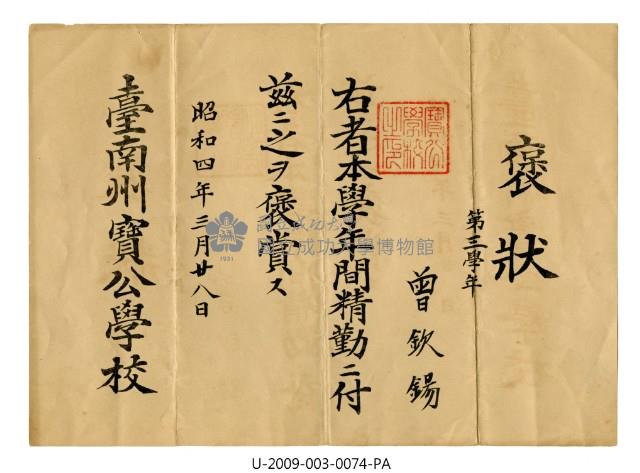 褒狀
第三學年
曾欽錫
右者本學年間精勤ニ付
茲ニ之ヲ褒賞ス
昭和四年三月廿八日
臺南州寶公學校
寶公學校之印
國立成功大學
國立成功大學博物館
1931
U-2009-003-0074-PA